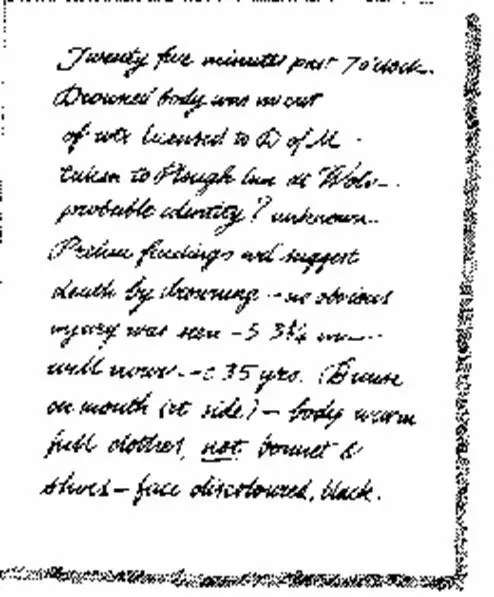 Twenty five minutes past 7 o'clock.
Drowned body was
of licensed to D of M
taken to Plough Inn at Wolv--
probable identity? unknown--
findings wd suggest
death by drowning -- no obvious
injury was seen - 5 3¾
- c 35 yrs. (Bruise
on mouth (rt side) - body warm
full clothes, not bonnet &
shoes - face discoloured, black.